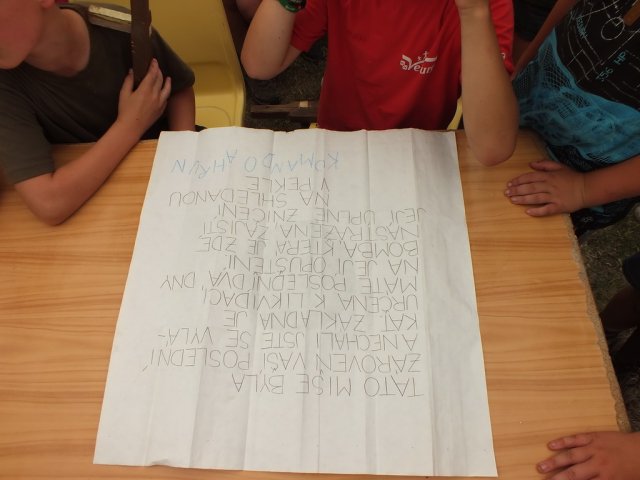 TATO MISE BYLA
ZÁROVEŇ VAŠÍ POSLEDNÍ,
A NECHALI JSTE SE VYLÁ-
KAT. ZÁKLADNA JE
URČENA K LIKVIDACI
MÁTE POSLEDNÍ DVA DNY
NA JEJÍ OPUŠTĚNÍ,
BOMBA, KTERÁ JE ZDE
NASTRAŽENA ZAJISTÍ
JEJÍ ÚPLNÉ ZNIČENÍ.
NA SHLEDANOU
V PEKLE
KOMANDO